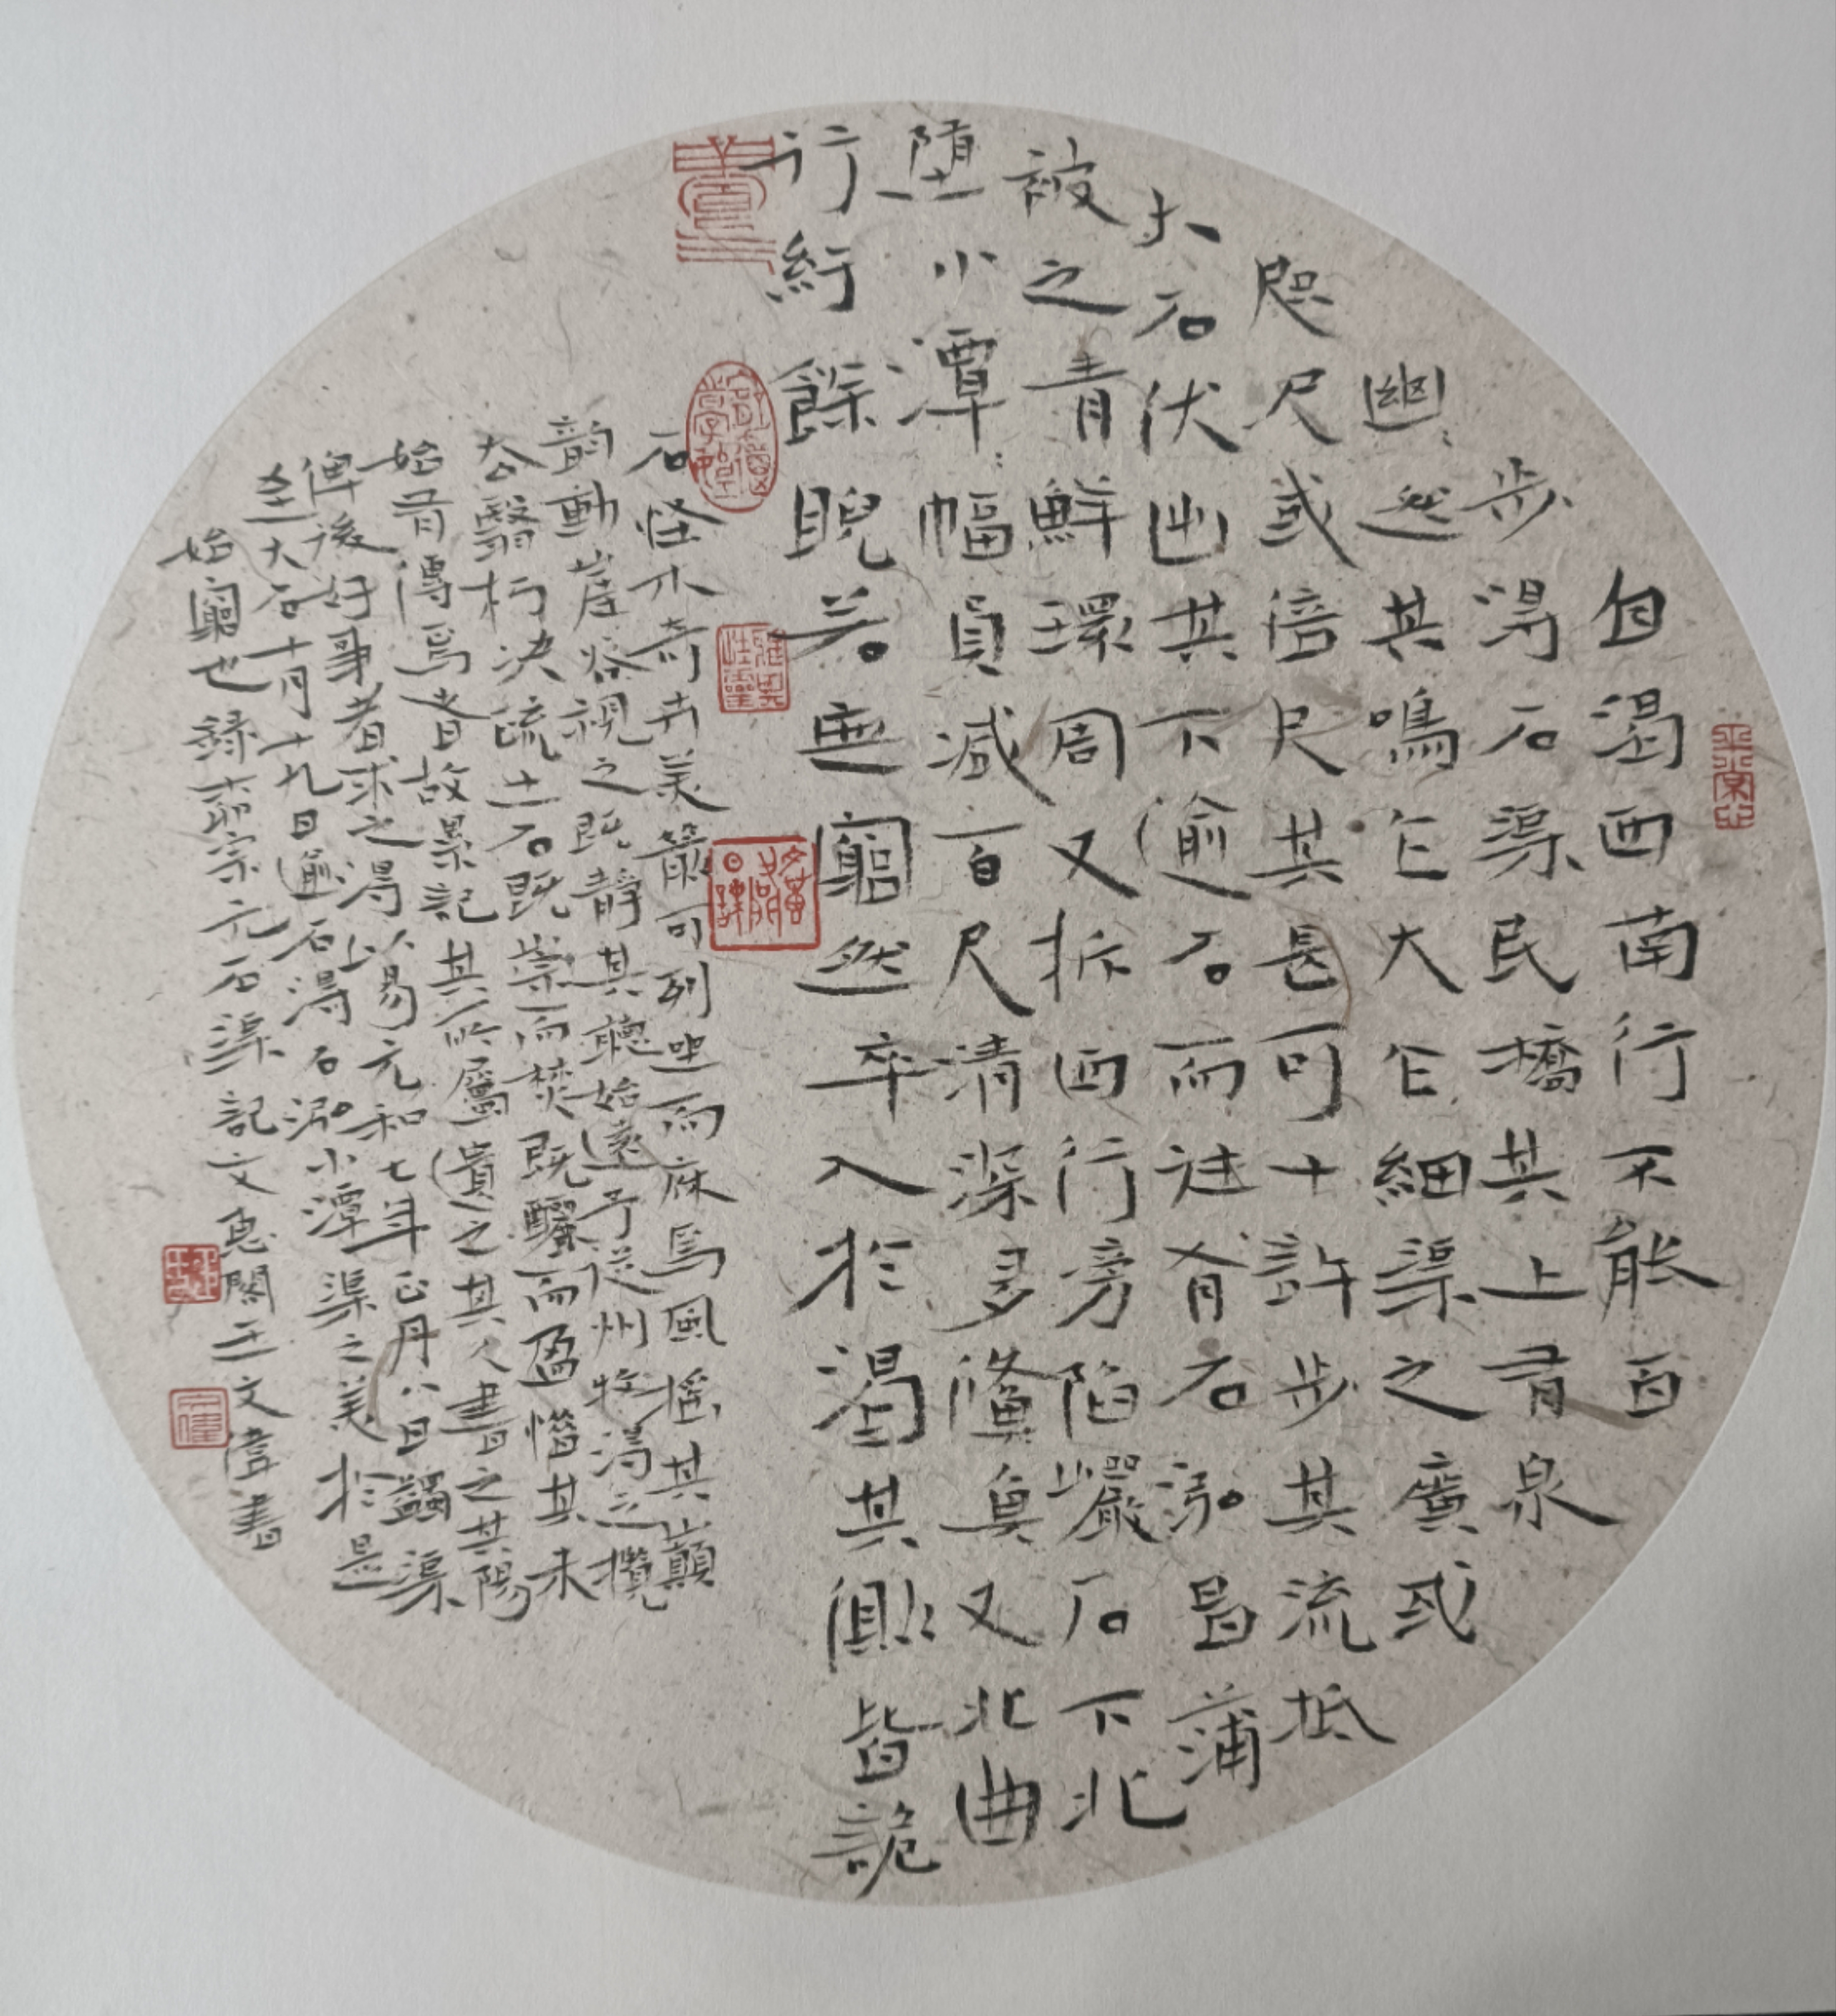 自渴西南行不能百
步得石渠民橋其上有泉
幽〻然其鳴乍大乍細渠之廣或
咫尺或倍尺其長可十許步其流抵
大石伏出其下逾石而往有石泓昌蒲
被之青鮮環周又折西行旁陷巖石下北
堕小潭〻幅員减百尺清深多鯈魚又北曲
行紆餘睨若無窮然卒入於渴其側皆詭
石怪木奇卉美箭可列坐而庥焉風摇其巔
韵動崖谷視之既靜其聽始遠予從州牧得之攬
去翳朽决疏土石既崇而焚既釃而盈惜其未
始有傳焉者故累記其所屬遺之其人書之其陽
俾後好事者求之得以易元和七年正月八日蠲渠
至大石十月十九日逾石得石泓小潭渠之美於是
始窮也録柳宗元石渠記文息閣王文偉書